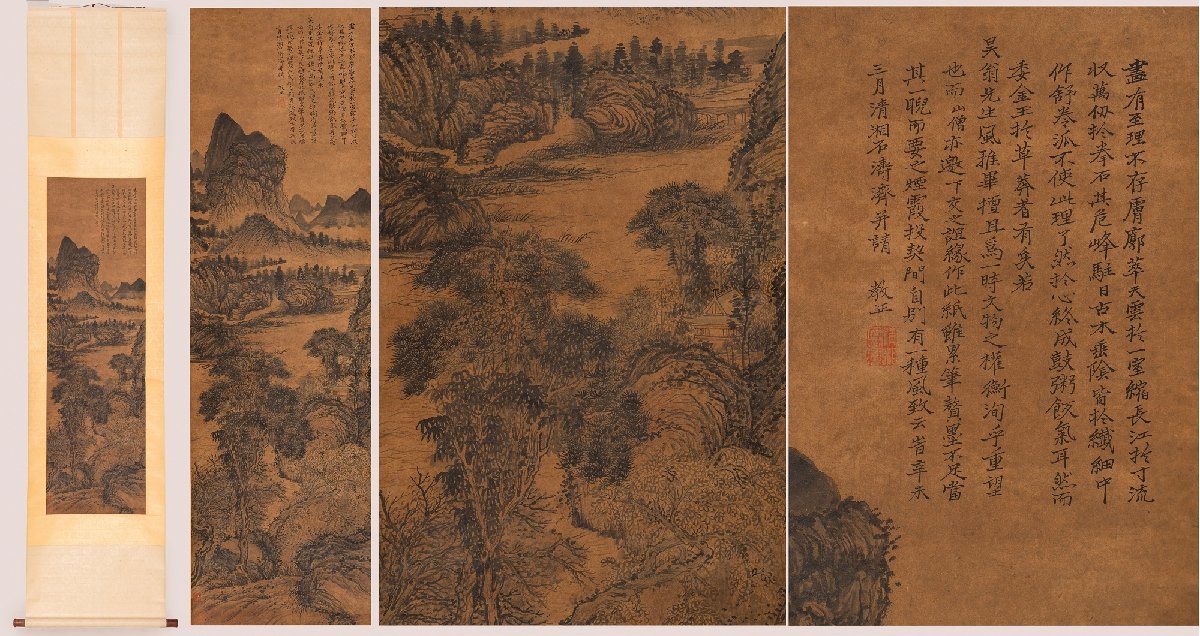 畫有至理不存膚廓萃天雲於一室縮長江於寸流
收萬仞於拳石其危峰駐日古木垂陰宙於纖細中
作舒卷派不使此理了然於心終成鼓粥飯氣耳然而
委金玉於草莽者有矣若
吴翁先生風推畢擅且為一時文物之權衡洵乎重望
也而山僧亦邀下交之誼緣作此紙雖累筆贅墨不足當
其一睨而要之煙霞投契間自別有一種風致云
三月清湘石濤濟并請 教正